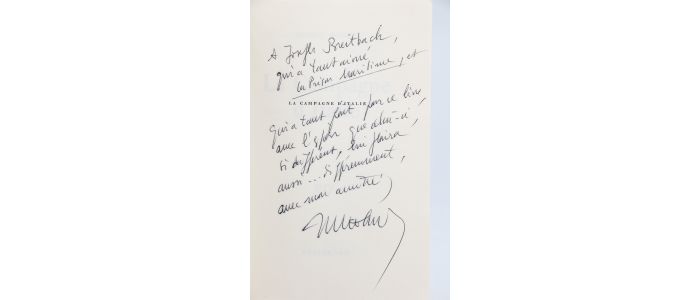 A Joseph Breitbach,
qui a tant aimé
La Prison Maritime, et
LA CAMPAGNE D'ITALIE
qui a tant fait pour ce livre
avec l'espoir que celui-ci,
si différent, lui plaira
aussi... différemment,
avec mon amitié,